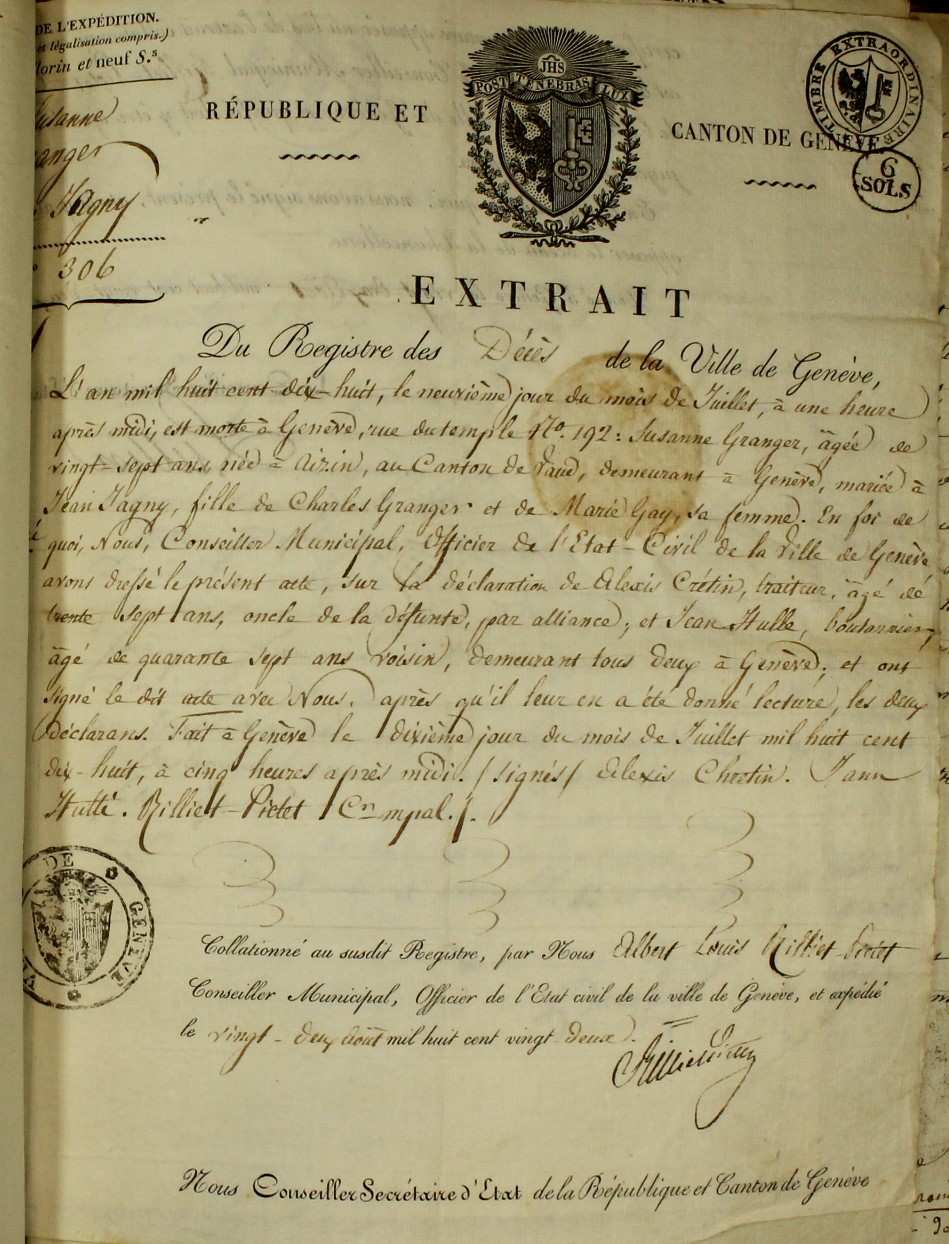 DE L'EXPÉDITION.
et légalisation compris.)
florin et neuf S.s
Susanne
anger
Jagny
306
RÉPUBLIQUE ET
JHS
POST TENEBRAS LUX
CANTON DE GENÈVE
TIMBRE EXTRAORDINAIRE
6
SOLS
EXTRAIT
Du Registre des Décès de la Ville de Genève,
L'an mil huit cent dix-huit, le neuvième jour du mois de Juillet, à une heure
après midi, est morte à Genève, rue du temple No. 192: Susanne Granger, âgée de
vingt-sept ans née à Aizin, au Canton de Vaud, demeurant à Genève, mariée à
Jean Jagny, fille de Charles Granger et de Marie Gay, sa femme. En foi de
quoi, Nous, Conseiller Municipal, Officier de l'Etat-Civil de la Ville de Genève
avons dressé le présent acte, sur la déclaration de Alexis Crétin, traiteur, âgé de
trente sept ans, oncle de la défunte, par alliance; et Jean Hulle, boutonnier,
âgé de quarante sept ans voisin, demeurant tous deux à Genève; et ont
signé le dit acte avec Nous, après qu'il leur en a été donné lecture, les deux
déclarans. Fait à Genève le dixième jour du mois de Juillet mil huit cent
dix-huit, à cinq heures après midi. /signés/ Alexis Chretin. Jann
Hutté. Rilliet-Pictet Cer mpal./.
DE GENÈVE
Collationné au susdit Registre, par Nous Albert Louis Rilliet-Pictet
Conseiller Municipal, Officier de l'Etat civil de la ville de Genève, et expédié
le vingt-deux Août mil huit cent vingt deux.
Rilliet Pictet
Nous Conseiller Secrétaire d'Etat de la République et Canton de Genève